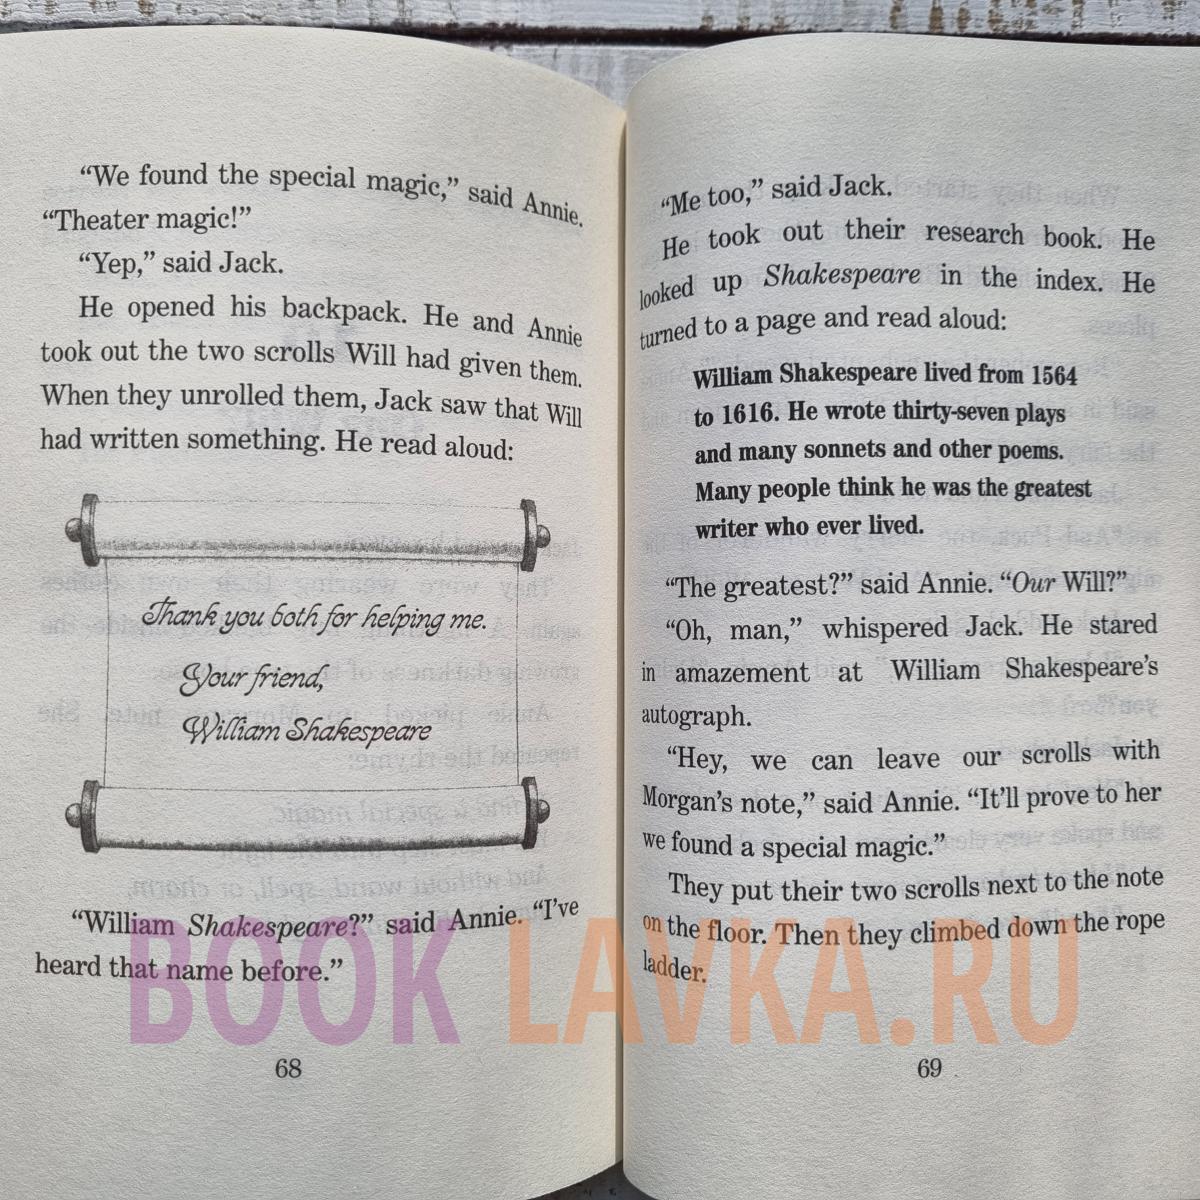 “We found the special magic,” said Annie.
“Theater magic!”
“Yep,” said Jack.
He opened his backpack. He and Annie
took out the two scrolls Will had given them.
When they unrolled them, Jack saw that Will
had written something. He read aloud:
Thank you both for helping me.
Your friend,
William Shakespeare
“William Shakespeare?” said Annie. “I’ve
heard that name before.”
68
“Me too,” said Jack.
He took out their research book. He
looked up Shakespeare in the index. He
turned to a page and read aloud:
William Shakespeare lived from 1564
to 1616. He wrote thirty-seven plays
and many sonnets and other poems.
Many people think he was the greatest
writer who ever lived.
“The greatest?” said Annie. “Our Will?”
“Oh, man,” whispered Jack. He stared
in amazement at William Shakespeare’s
autograph.
“Hey, we can leave our scrolls with
Morgan’s note,” said Annie. “It’ll prove to her
we found a special magic.”
They put their two scrolls next to the note
on the floor. Then they climbed down the rope
ladder.
69
BOOK LAVKA.RU